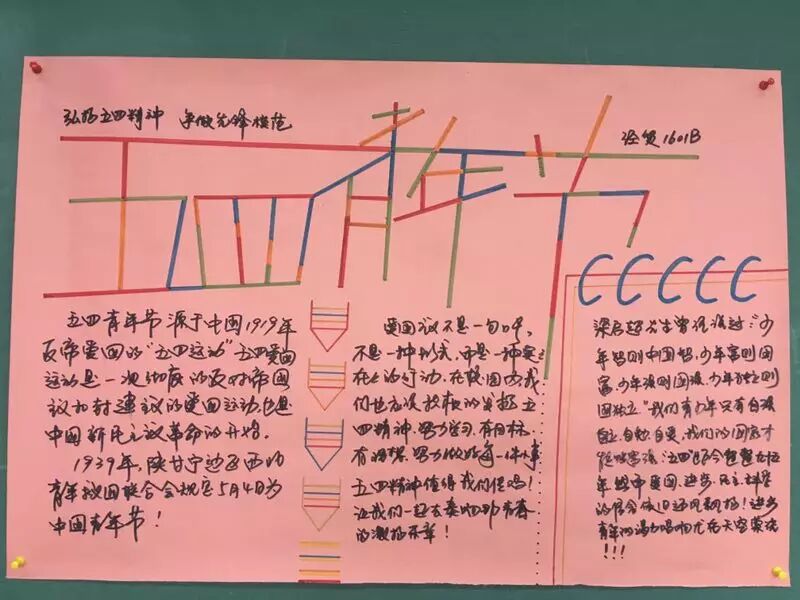 弘扬五四精神 争做先锋模范
经贸1601B
五四青年节
五四青年节源于中国1919年
反帝爱国的"五四运动"五四爱国
运动是一次彻底的反对帝国
主义和封建主义的爱国运动,也是
中国新民主主义革命的开始。
1939年,陕甘宁边区西北
青年救国联合会规定5月4日为
中国青年节!
爱国主义不是一句口号,
不是一种形式,而是一种实
在在的行动,在校园内我
们也应该积极的发扬五
四精神,努力学习,有目标,
有理想,努力做好每一件小事
五四精神值得我们信吗!
让我们一起去奏响那青春
的激扬乐章!
梁启超先生曾说过:"少
年智则中国智,少年富则国
富,少年强则国强,少年独立则
国独立"我们青少年只有自强
自立,自勉,自爱,我们的国家才
年 中爱国、进步、民主、科学
的 会依旧迎风飘扬!进步
青年的 响 在天空
!!!